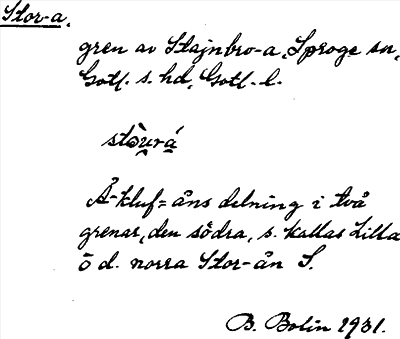 Stor-a.
gren av Stajnbro-a, Sproge sn,
Gotl. s. hd, Gotl. l.
stòu̯rá̯
Å-kluf = åns delning i två
grenar, den södra, s. kallas Lilla
ō d. norra Stor-ån S.
B. Bolin 1931.